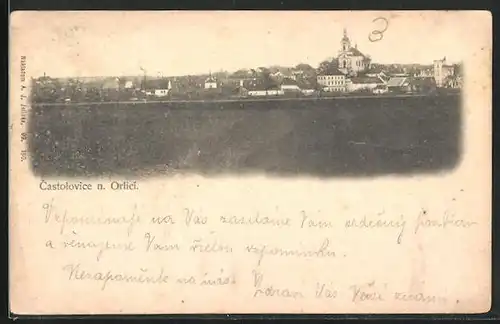 Častolovice n. Orlicí.
Vzpomínaje na Vás zasíláme Vám srdečný pozdrav
a věnujeme Vám vzpomínku.
Nezapomeňte na nás.
Zdraví Vás Vaši známí
3